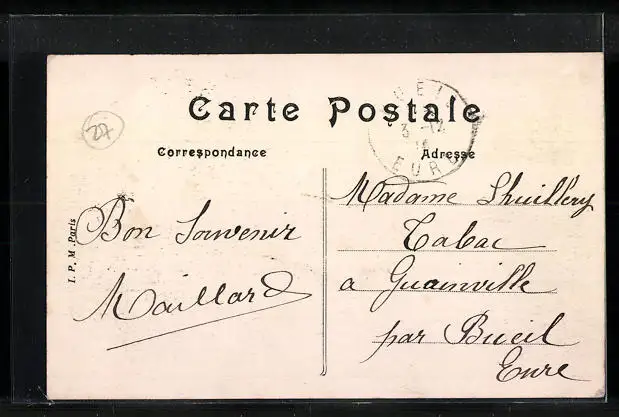 Carte Postale
Correspondance
Adresse
27
I. P. M. Paris
Bon Souvenir
Maillard
Madame Lhuillery
Tabac
a Guainville
par Bueil
Eure
EURE